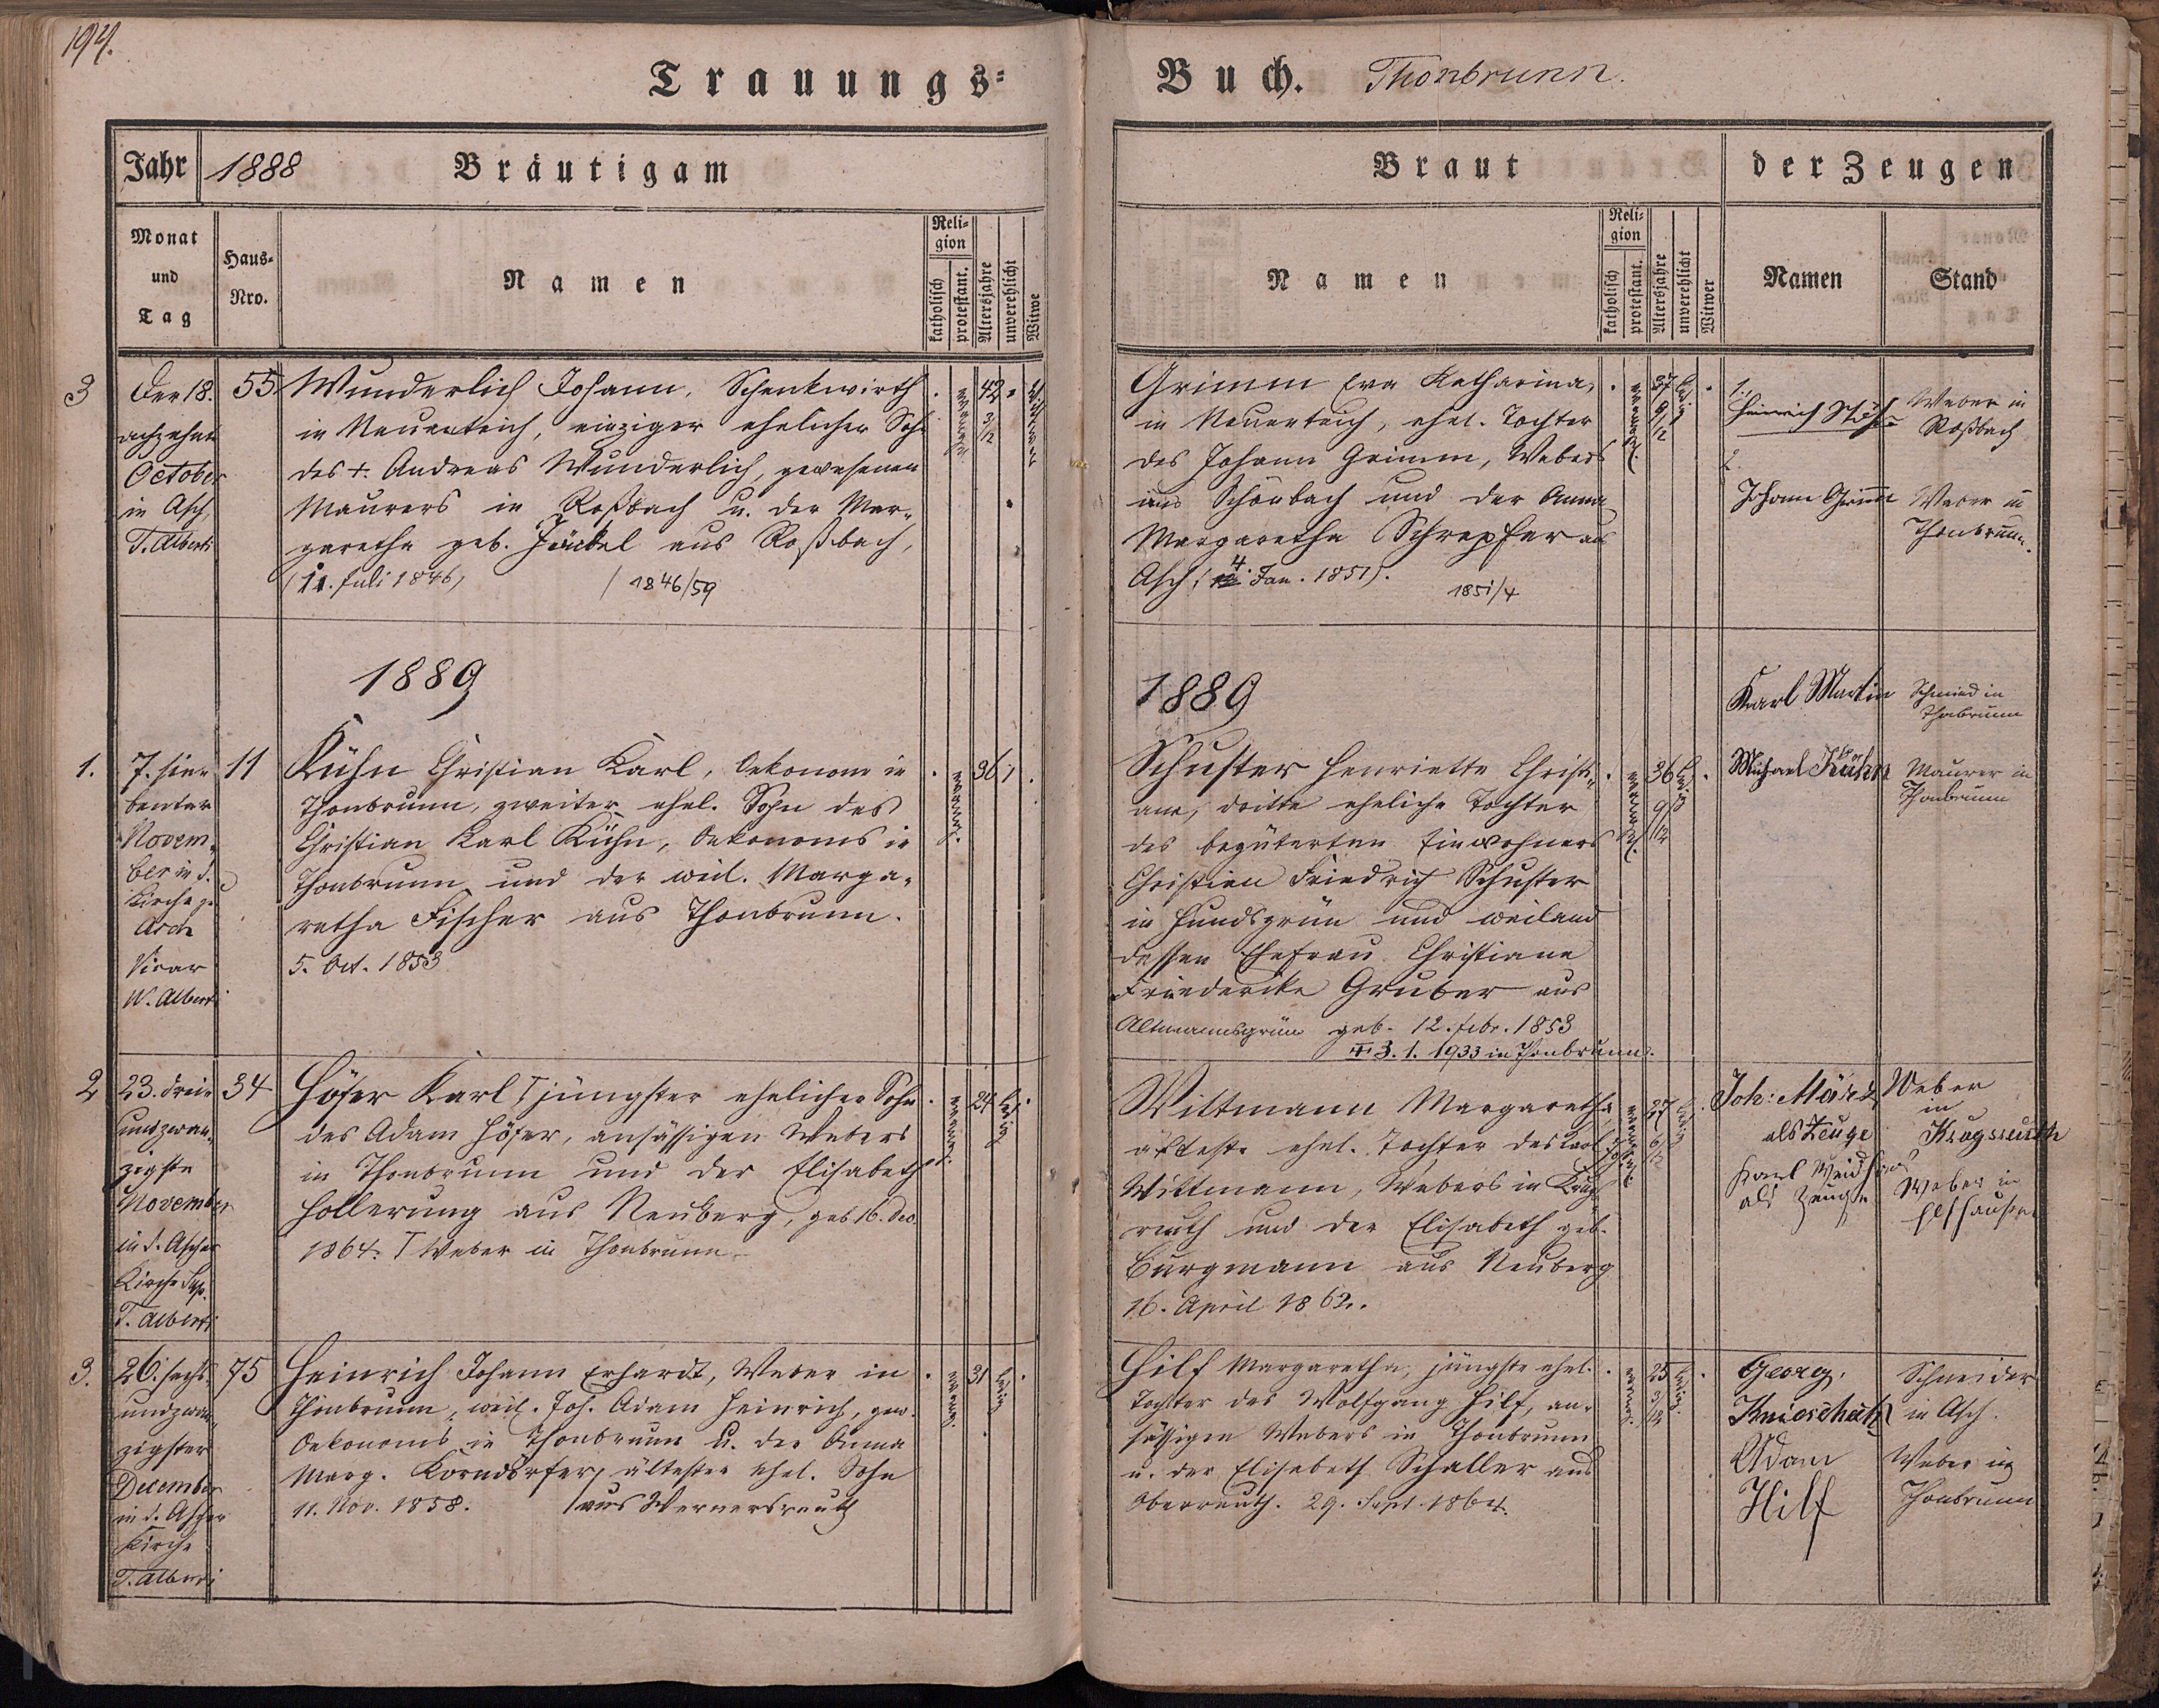 194.
Trauungs=
Jahr 1888 Bräutigam
Monat und Tag
Haus= Nro.
Namen
Reli= gion
katholisch
protestant.
Altersjahre
unverehlicht
Witwe
3
Der 18.
achzehnte
October
in Asch,
T. Alberti
55
Wunderlich Johann, Schenkwirth
in Neuenteich, einziger ehelicher Sohn
des +. Andreas Wunderlich, gewesenen
Maurers in Roßbach u. der Mar=
garetha geb. Jäckel aus Roßbach,
(11. Juli 1846)
/ 1846/59
42 3/12
1889
1.
7. sie=
benter
Novem=
ber in d.
Kirche zu
Asch
Vicar
W. Alberti
11
Kühn Christian Karl, Oekonom in
Thonbrunn, zweiter ehel. Sohn des
Christian Karl Kühn, Oekonoms in
Thonbrunn und der weil. Marga=
retha Fischer aus Thonbrunn.
5. Oct. 1853
36
2
23. drei=
undzwan=
zigste
November
in d. Ascher
Kirche Sup.
T. Alberti
34
Höfer Karl jüngster ehelicher Sohn
des Adam Höfer, ansässigen Webers
in Thonbrunn und der Elisabeth
Hollerung aus Neuberg, geb 16. Dec.
1864. Weber in Thonbrunn
24 ledig
3.
26. sechs=
undzwan=
zigster
December
in d. Ascher
Kirche
T. Alberti
75
Heinrich Johann Erhardt, Weber in
Thonbrunn, weil. Joh. Adam Heinrich, gew.
Oekonoms in Thonbrunn u. der Anna
Marg. Korndörfer, ältester ehel. Sohn
11. Nov. 1858. / aus Wernersreuth
31 ledig
Buch. Thonbrunn.
Braut
der Zeugen
Namen
Reli= gion
katholisch
protestant.
Altersjahre
unverehlicht
Witwer
Namen
Stand
Grimm Eva Katharina,
in Neuenteich, ehel. Tochter
des Johann Grimm, Webers
aus Schönbach und der Anna
Margaretha Schrepfer aus
Asch; 4. Jan. 1851).
1851/4
37 9/12
1.
Heinrich
Weber in
Roßbach
2.
Johann Grimm
Weber in
Thonbrunn.
1889
Karl Martin
Schmied in
Thonbrunn
Schuster Henriette Christi=
ane, dritte eheliche Tochter
des begüterten Einwohners
Christian Friedrich Schuster
in Hundsgrün und weiland
dessen Ehefrau Christiane
Friedericke Gruber aus
Altmannsgrün geb. 12. Febr. 1853
3. 1. 1933 in Thonbrunn.
36 9/12
Michael Kühn
Maurer in
Thonbrunn
Wittmann Margaretha,
älteste ehel. Tochter des
Wittmann, Webers in Krugs
reuth und der Elisabeth geb.
Burgmann aus Neuberg
16. April 1862.
27 6/12
Joh:
als Zeuge
Weber
in
Krugsreuth
Karl
als Zeuge
Weber in
Hilf Margaretha, jüngste ehel.
Tochter des Wolfgang Hilf, an=
sässigen Webers in Thonbrunn
u. der Elisabeth Schaller aus
Oberreuth. 29. Sept. 1864.
25 3/12
Georg
Knieschek
Schneider
in Asch.
Adam
Hilf
Weber in
Thonbrunn